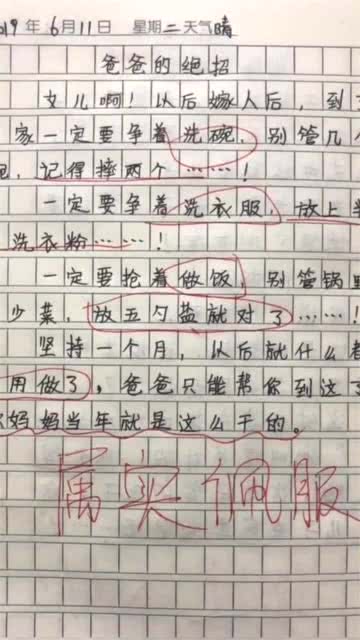 019年6月11日 星期二天气晴
爸爸的绝招
女儿啊!以后嫁人后,到了
家一定要争着洗碗,别管几个
,记得摔两个……!
一定要争着洗衣服,放上半
洗衣粉……!
一定要抢着做饭,别管锅里
少菜,放五勺盐就对了……!
坚持一个月,以后就什么都
用做了。爸爸只能帮你到这了
妈妈当年就是这么干的。
属实佩服